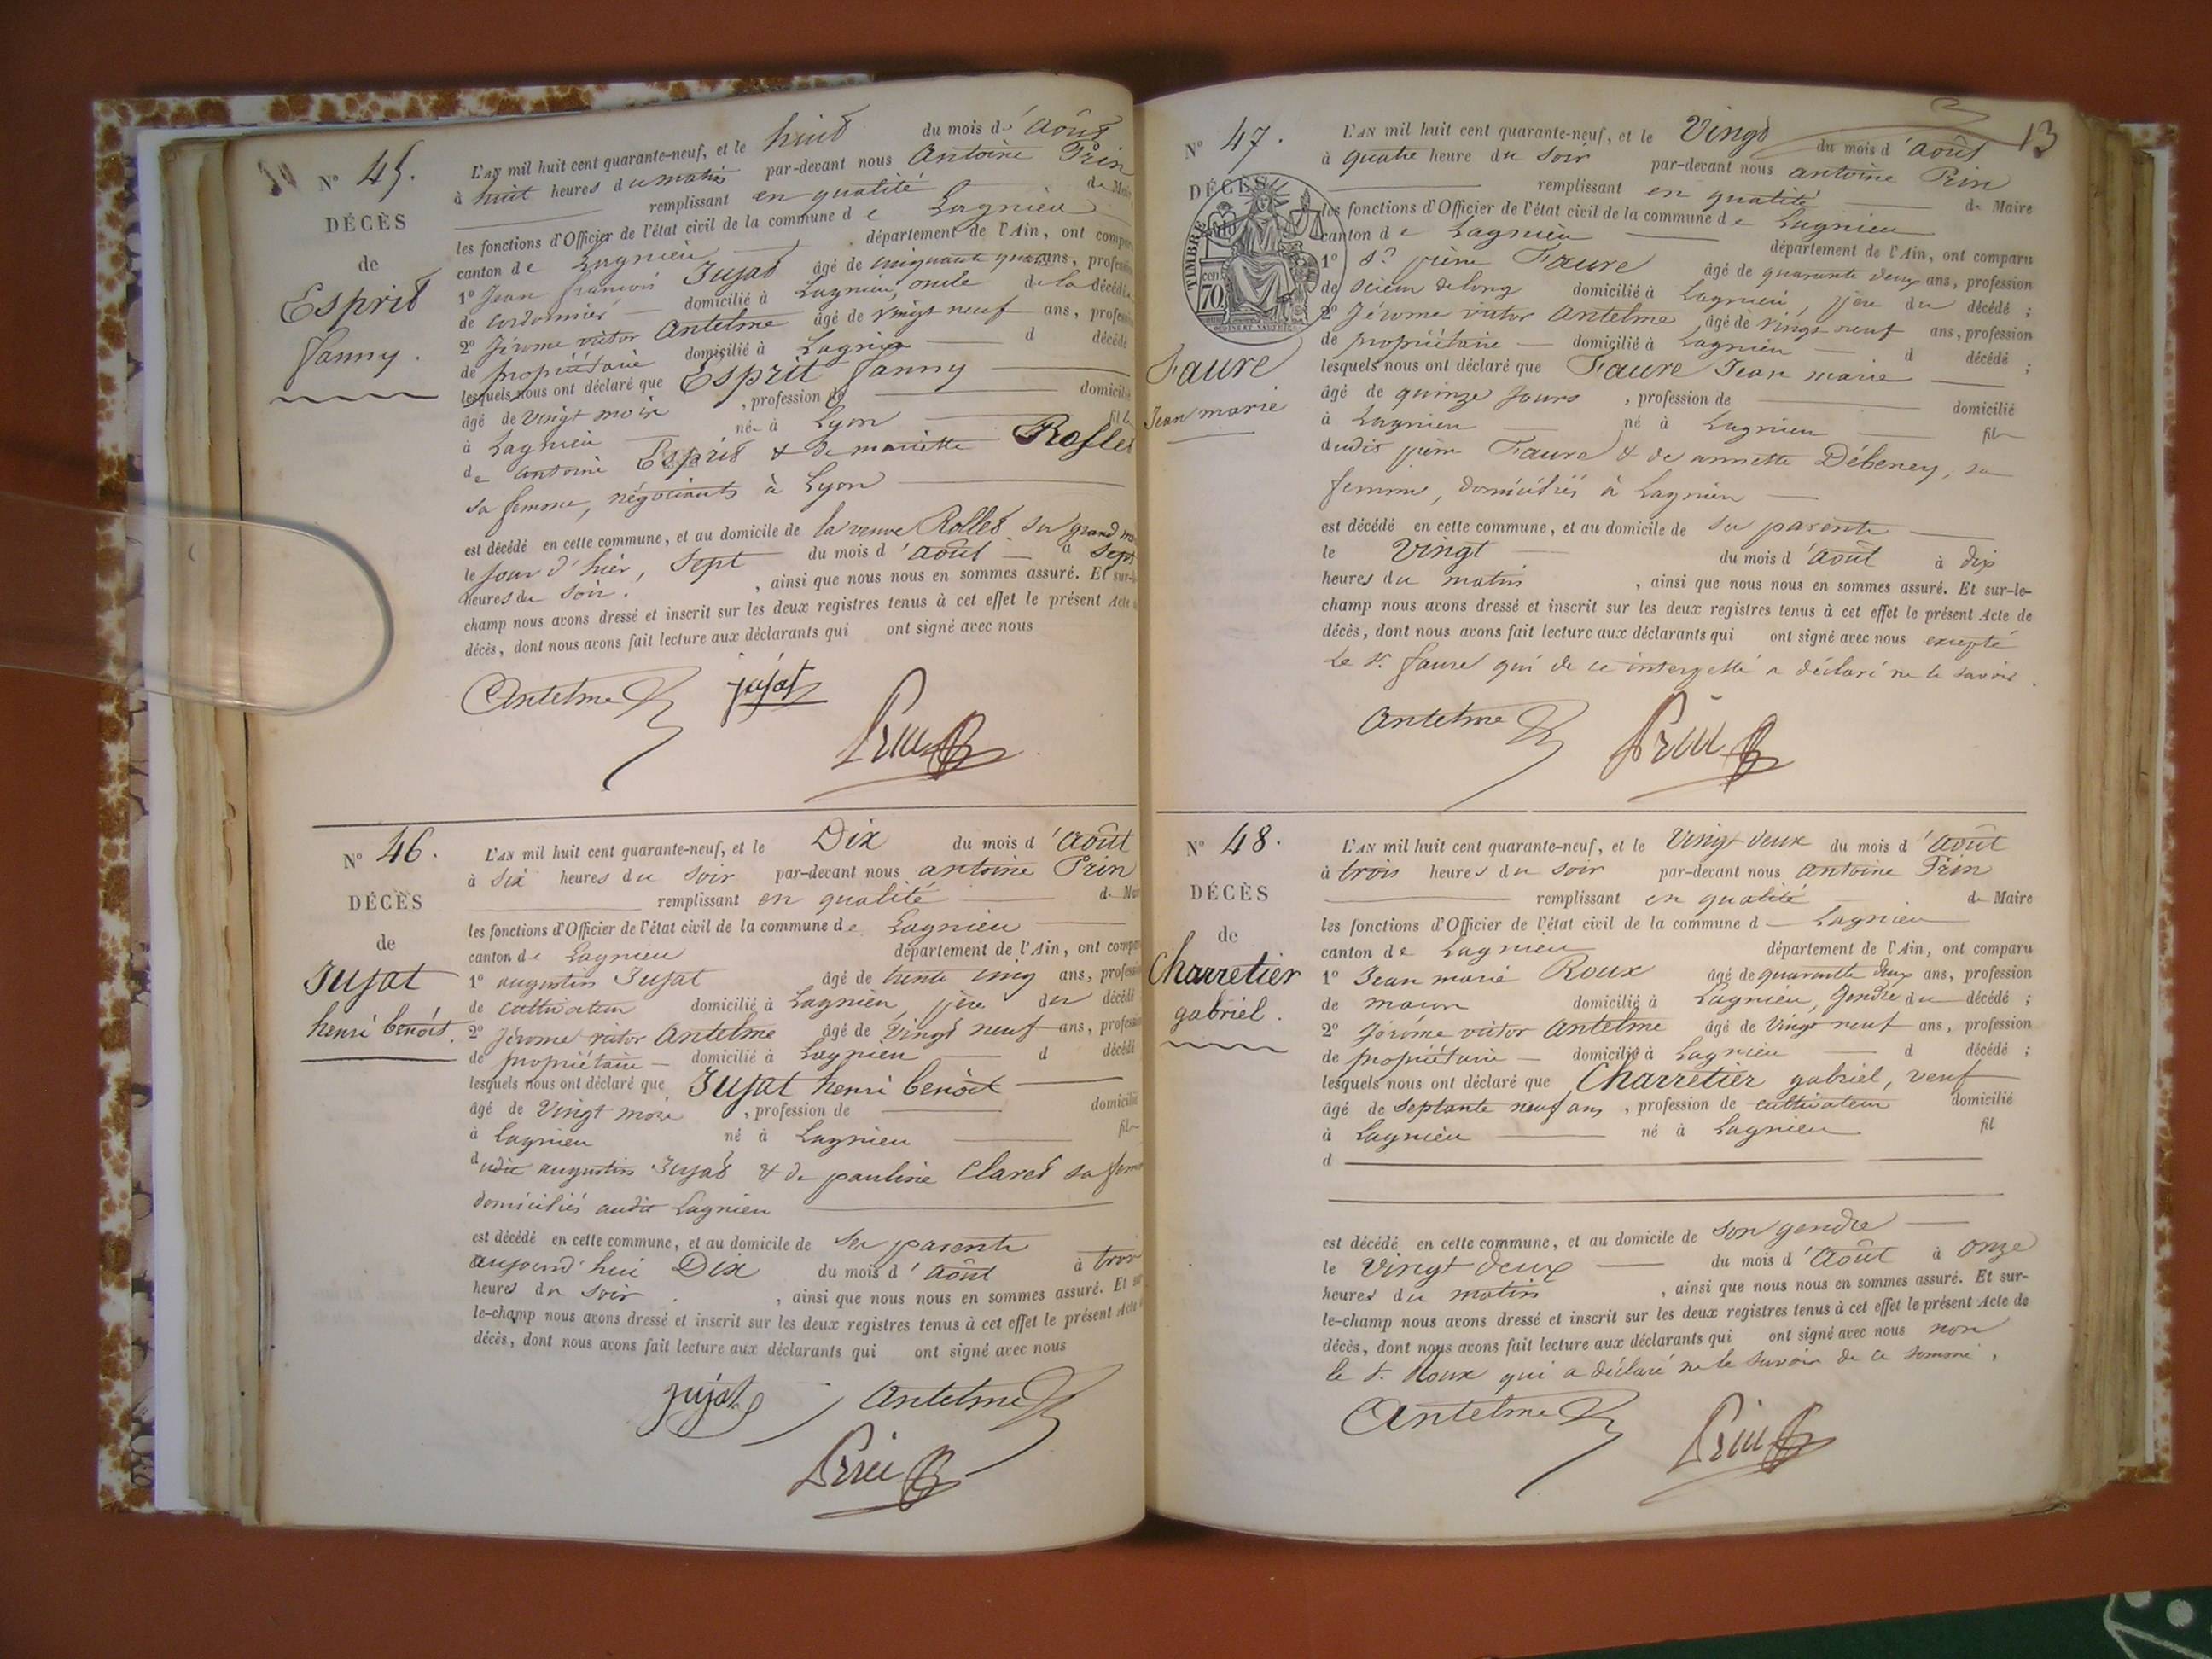 N° 45.
DÉCÈS
de
Esprit
fanny.
L'AN mil huit cent quarante-neuf, et le huit du mois d'Août
à huit heures du matin par-devant nous Antoine Prin
remplissant en qualité de Mai
les fonctions d'Officier de l'état civil de la commune de Lagnieu
canton de Lagnieu département de l'Ain, ont compa
1° Jean françois Jujat âgé de cinquante quatre ans, profession
de cordonnier domicilié à Lagnieu, oncle de la décédée
2° Jérome victor Antelme âgé de vingt neuf ans, profess
de propriétaire domicilié à Lagnieu d décédé
lesquels nous ont déclaré que Esprit fanny
âgé de vingt mois , profession de domicilié
à Lagnieu née à Lyon fille
de antoine Esprit & de mariette Rollet
sa femme, négociants à Lyon
est décédé en cette commune, et au domicile de la veuve Rollet sa grand m
le jour d'hier, Sept du mois d'août à Sept
heures du soir. , ainsi que nous nous en sommes assuré. Et sur-le-
champ nous avons dressé et inscrit sur les deux registres tenus à cet effet le présent Acte
décès, dont nous avons fait lecture aux déclarants qui ont signé avec nous
Antelme jujat
Prin
N° 46.
DÉCÈS
de
Jujat
henri benoit.
L'AN mil huit cent quarante-neuf, et le Dix du mois d'Août
à six heures du soir par-devant nous antoine Prin
remplissant en qualité de Mai
les fonctions d'Officier de l'état civil de la commune de Lagnieu
canton de Lagnieu département de l'Ain, ont compa
1° augustin Jujat âgé de trente cinq ans, profession
de cultivateur domicilié à Lagnieu, père du décédé
2° Jérome victor Antelme âgé de vingt neuf ans, profession
de propriétaire domicilié à Lagnieu d décédé
lesquels nous ont déclaré que Jujat henri benoit
âgé de vingt mois , profession de domicilié
à Lagnieu né à Lagnieu fils
dudit augustin Jujat & de pauline Claret sa femme
domiciliés audit Lagnieu
est décédé en cette commune, et au domicile de ses parents
aujourd'hui Dix du mois d'Août à trois
heures du soir , ainsi que nous nous en sommes assuré. Et sur
le-champ nous avons dressé et inscrit sur les deux registres tenus à cet effet le présent Acte
décès, dont nous avons fait lecture aux déclarants qui ont signé avec nous
jujat Antelme
Prin
13
N° 47.
DÉCÈS
TIMBRE
70 cen
Faure
Jean marie
L'AN mil huit cent quarante-neuf, et le Vingt du mois d'août
à quatre heure du soir par-devant nous antoine Prin
remplissant en qualité de Maire
les fonctions d'Officier de l'état civil de la commune de Lagnieu
canton de Lagnieu département de l'Ain, ont comparu
1° Sr pierre Faure âgé de quarante deux ans, profession
de scieur de long domicilié à Lagnieu, père du décédé ;
2° Jérome victor Antelme âgé de vingt neuf ans, profession
de propriétaire domicilié à Lagnieu d décédé ;
lesquels nous ont déclaré que Faure Jean marie
âgé de quinze jours , profession de domicilié
à Lagnieu né à Lagnieu fils
dudit pierre Faure & de annette Débeney, sa
femme, domiciliés à Lagnieu
est décédé en cette commune, et au domicile de ses parents
le vingt du mois d'août à dix
heures du matin , ainsi que nous nous en sommes assuré. Et sur-le-
champ nous avons dressé et inscrit sur les deux registres tenus à cet effet le présent Acte de
décès, dont nous avons fait lecture aux déclarants qui ont signé avec nous excepté
le Sr. faure qui de ce interpellé a déclaré ne le savoir.
Antelme Prin
N° 48.
DÉCÈS
de
Charretier
gabriel.
L'AN mil huit cent quarante-neuf, et le Vingt deux du mois d'Août
à trois heures du soir par-devant nous antoine Prin
remplissant en qualité de Maire
les fonctions d'Officier de l'état civil de la commune d Lagnieu
canton de Lagnieu département de l'Ain, ont comparu
1° Jean marie Roux âgé de quarante deux ans, profession
de maçon domicilié à Lagnieu, gendre du décédé ;
2° Jérome victor Antelme âgé de vingt neuf ans, profession
de propriétaire domicilié à Lagnieu d décédé ;
lesquels nous ont déclaré que Charretier gabriel, veuf
âgé de septante neuf ans , profession de cultivateur domicilié
à Lagnieu né à Lagnieu fil
d
est décédé en cette commune, et au domicile de son gendre
le vingt deux du mois d'Août à onze
heures du matin , ainsi que nous nous en sommes assuré. Et sur-
le-champ nous avons dressé et inscrit sur les deux registres tenus à cet effet le présent Acte de
décès, dont nous avons fait lecture aux déclarants qui ont signé avec nous non
le Sr. Roux qui a déclaré ne le savoir de ce sommé.
Antelme Prin